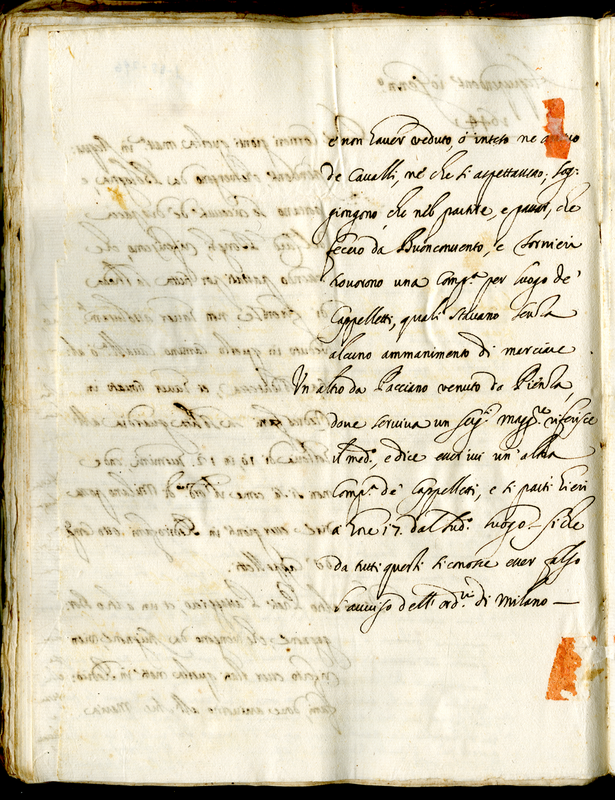 e non haver veduto, ò inteso ne
de Cavalli, ne che si aspettavero; sog:
giongono, che nel partire, e passar, che
fecero da Buonconvento, e Torrieri
trovorono una Comp.ª per luogo de'
Cappelletti, quali stavano senza
alcuno ammanimento di marciare
Un altro da Pacciano venuto da Pienza,
dove serviva un Serg.e magg.re riferisce
il med.º, e dice esser ivi un'altra
Comp.ª de' Cappelletti, e si partì hieri
a hore 17. dal sud.º luogo, si che
da tutti questi si conosce esser falso
l'avviso dell'ord.rio di Milano —